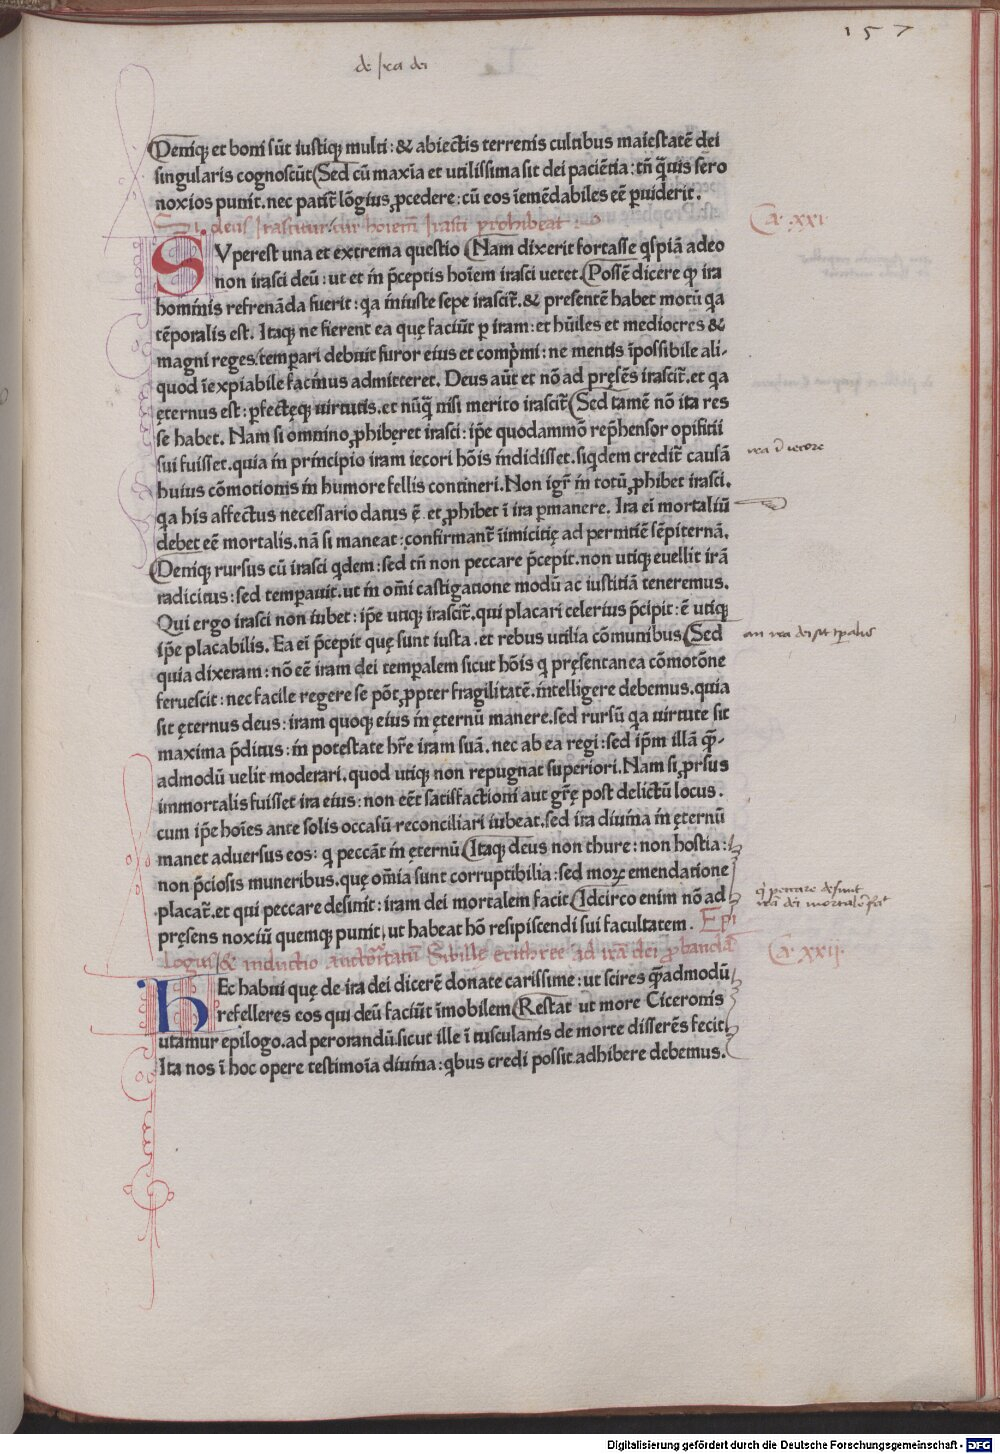 157
de ira dei
Deniqꝫ et boni sūt iustiqꝫ multi : & abiectis terrenis cultibus maiestatē dei
singularis cognoscūt (Sed cū maxīa et utilissima sit dei paciētia : tn̄ q̄uis sero
noxios punit. nec patit᷑ lōgius ꝓcedere : cū eos īemēdabiles eē puiderit.
Si deus Irascitur cur hoīem Irasci prohibeat
Ca. xxi
SVperest una et extrema questio (Nam dixerit fortasse qͥspiā adeo
non irasci deū : ut et in p̄ceptis hoīem irasci uetet. (Possē dicere ꝙ ira
hominis refrenāda fuerit : qa iniuste sepe irascit᷑. & presentē habet motū qa
tēporalis est. Itaqꝫ ne fierent ea quę faciūt p iram : et hūiles et mediocres &
magni reges. tempari debuit furor eius et comp̍mi : ne mentis īpossibile ali-
quod īexpiabile facinus admitteret. Deus aūt et nō ad pręsēs irascit᷑. et qa
ęternus est : pfectęqꝫ uirtutis. et nūq̄ nisi merito irascit᷑ (Sed tamē nō ita res
se habet. Nam si omnino ꝓhiberet irasci : ip̄e quodammō rep̄hensor opificii
sui fuisset. quia in principio iram iecori hōis indidisset. siqdem credit᷑ causā
ira ī iecore
huius cōmotionis in humore fellis contineri. Non igr̄ in totū ꝓhibet irasci.
qa his affectus necessario datus ē. et ꝓhibet ī ira pmanere. Ira eī mortaliū
debet eē mortalis. nā si maneat : confirmant᷑ īimicitię ad pernitiē sēpiternā.
(Deniqꝫ rursus cū irasci qdem : sed tn̄ non peccare p̄cepit. non utiqꝫ euellit irā
radicitus : sed tempauit. ut in om̄i castigatione modū ac iustitiā teneremus.
Qui ergo irasci non iubet : ip̄e utiqꝫ irascit᷑. qui placari celerius p̄cipit : ē utiqꝫ
ip̄e placabilis. Ea eī p̄cepit quę sunt iusta. et rebus utilia cōmunibus (Sed
an ira dei sit tp̄alis
quia dixeram : nō eē iram dei tempalem sicut hōis q pręsentanea cōmotōne
feruescit : nec facile regere se pōt ꝓpter fragilitatē. intelligere debemus. quia
sit ęternus deus : iram quoqꝫ eius in ęternū manere. sed rursū qa uirtute sit
maxima p̄ditus : in potestate hr̄e iram suā. nec ab ea regi : sed ip̄m illā quē-
admodū uelit moderari. quod utiqꝫ non repugnat superiori. Nam si ꝓrsus
immortalis fuisset ira eius : non eēt satisfactioni aut gr̄ę post delictū locus.
cum ip̄e hoīes ante solis occasū reconciliari iubeat. sed ira diuina in ęternū
manet aduersus eos : q peccāt in ęternū (Itaqꝫ deus non thure : non hostia :
non p̄ciosis muneribus. quę om̄ia sunt corruptibilia : sed moꝝ emendatione
placat᷑. et qui peccare desinit : iram dei mortalem facit (Idcirco enim nō ad
qͥ peccare desinit
irā dei mortalē fac̄
pręsens noxiū quemqꝫ punit : ut habeat hō resipiscendi sui facultatem. Epi
logus & inductio auctoritatū Sibille erithree ad irā dei ꝓbandā
Ca. xxij.
HEc habui quę de ira dei dicerē donate carissime : ut scires quēadmodū
refelleres eos qui deū faciūt īmobilem (Restat ut more Ciceronis
utamur epilogo. ad perorandū. sicut ille ī tusculanis de morte disserēs fecit
Ita nos ī hoc opere testimoīa diuina : qbus credi possit adhibere debemus.
Digitalisierung gefördert durch die Deutsche Forschungsgemeinschaft - DFG